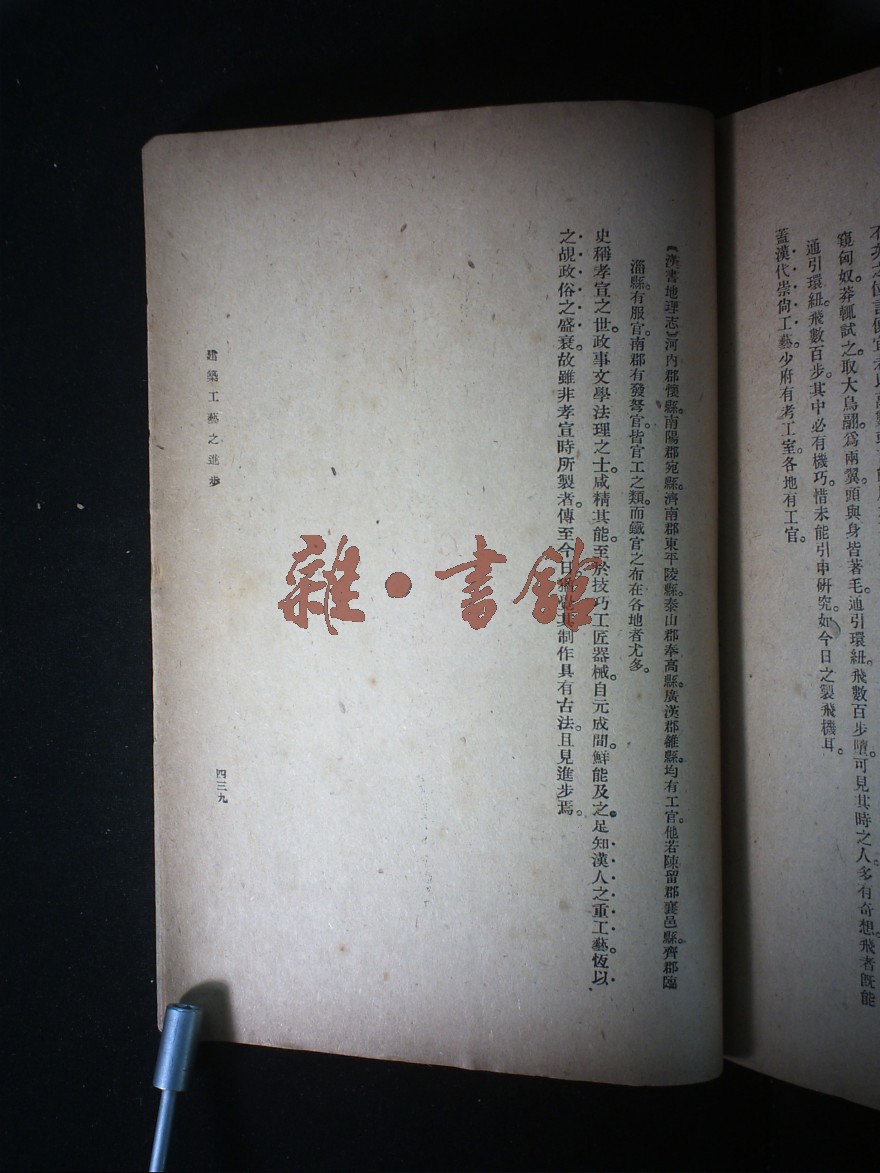 窺匈奴。莽輒試之。取大鳥翮爲兩翼。頭與身皆著毛。通引環紐。飛數百步墮。可見其時之人多有奇想。飛者旣能
通引環紐。飛數百步。其中必有機巧。惜未能引申研究。如今日之製飛機耳。
蓋漢代崇尙工藝。少府有考工室。各地有工官。
《漢書地理志》河內郡懷縣。南陽郡宛縣。濟南郡東平陵縣。泰山郡奉高縣。廣漢郡雒縣。均有工官。他若陳留郡襄邑縣。齊郡臨
淄縣。有服官。南郡有發弩官。皆官工之類。而鐵官之布在各地者尤多。
史稱孝宣之世。政事文學法理之士。咸精其能。至於技巧工匠器械。自元成間。鮮能及之。足知漢人之重工藝。恆以
之覘政俗之盛衰。故雖非孝宣時所製者。傳至今日。猶覺其制作具有古法。且見進步焉。
建築工藝之進步
四三九
雜·書館